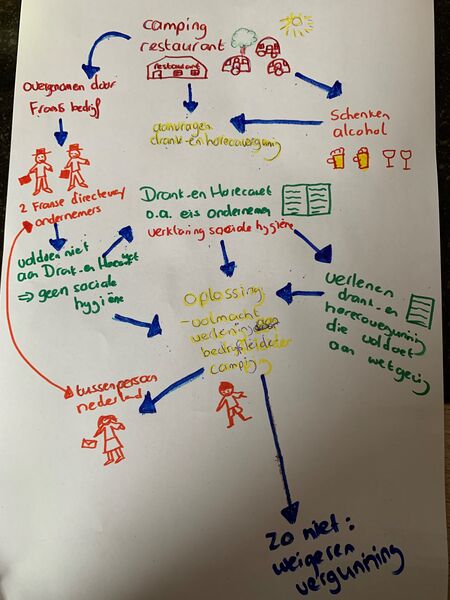 camping
restaurant
restaurant
overgenomen door
Frans bedrijf
Schenken
alcohol
aanvragen
drank-en horecavergunning
2 Franse directeuren/
ondernemers
Drank-en Horecawet
o.a. eis ondernemer
verklaring sociale hygiëne
voldoen niet
aan Drank-en Horecawet
⇒ geen sociale
hygiëne
verlenen
drank-en
horecavergunning
die voldoet
aan wetgeving
oplossing
-volmacht
verlening
bedrijfsleider
camping
tussenpersoon
nederland
zo niet:
weigeren
vergunning